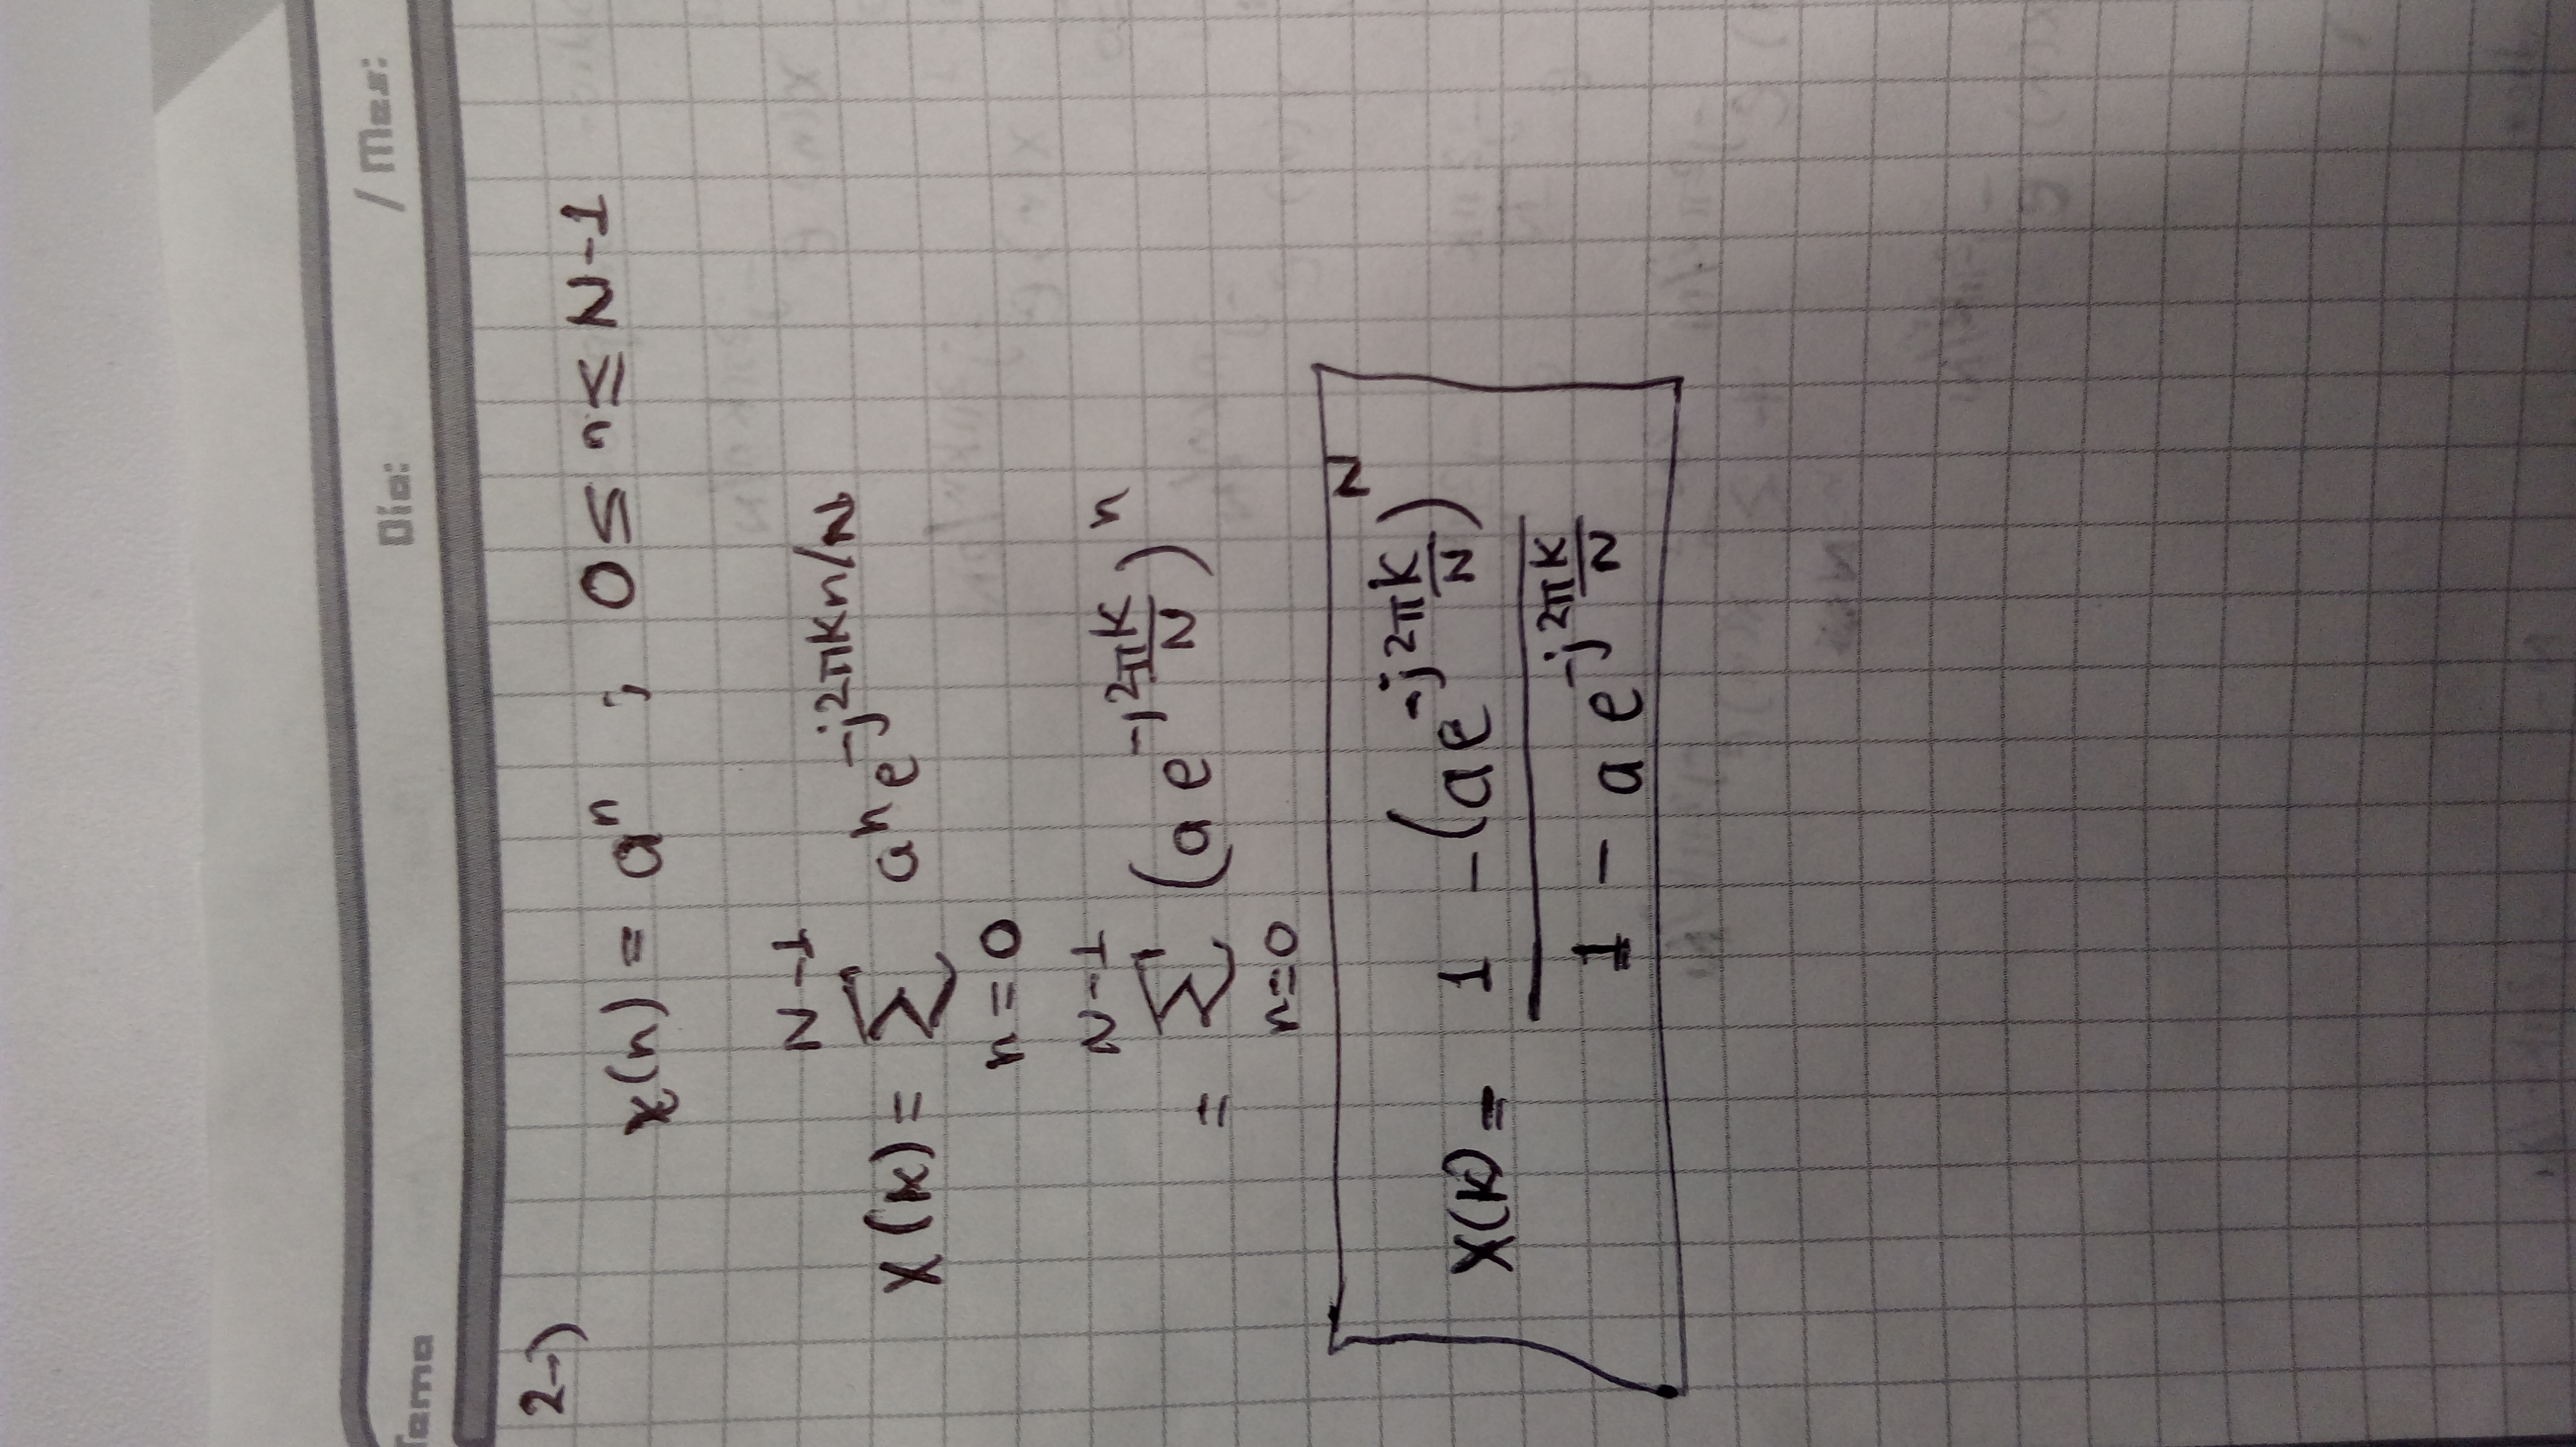 Tema Día: / Mes:
2-)
x(n) = aⁿ ; 0 ≤ n ≤ N-1
N-1
X(k) = ∑ aⁿ e^{-j2πkn/N}
n=0
N-1
= ∑ (a e^{-j2πk/N})ⁿ
n=0
X(k) = \frac{1 - (a e^{-j2π\frac{k}{N}})^N}{1 - a e^{-j2π\frac{k}{N}}}